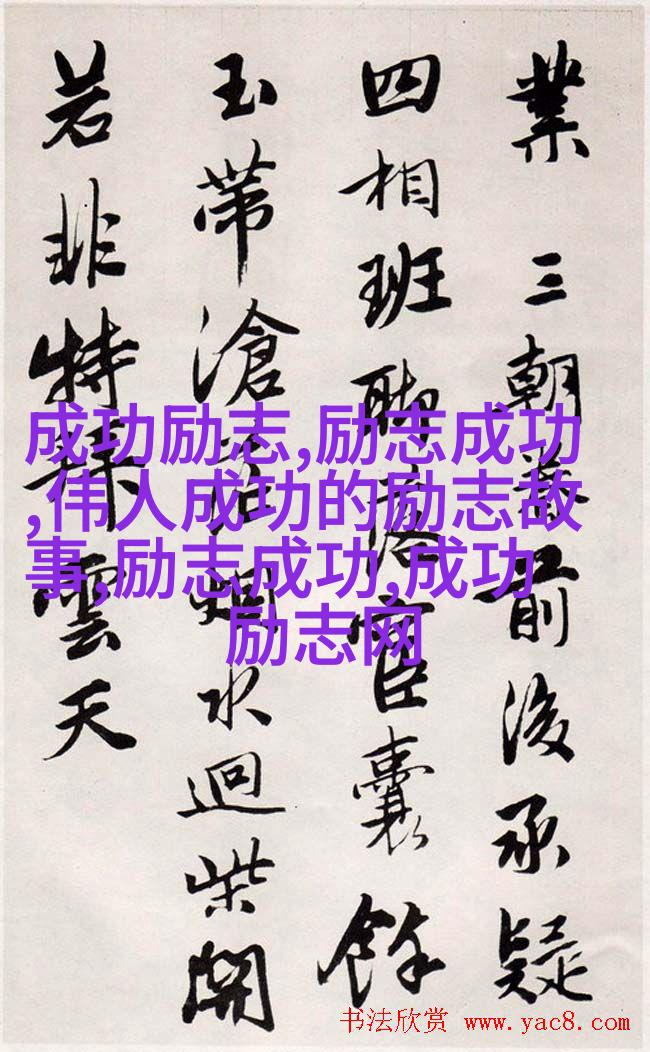 業 三朝前後承疑
四相班聯臣囊餘
玉帶滄水迴柴開
若非特雲天
成功励志,励志成功
,伟人成功的励志故
事,励志成功,成功
励志网
书法欣赏 www.yac8.com